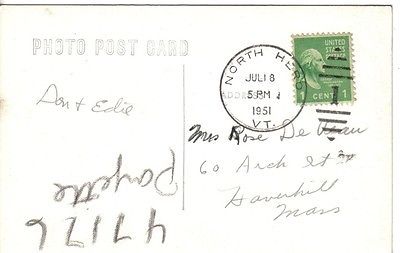 PHOTO POST CARD
NORTH HERO
JUL 18
5 PM
1951
VT.
UNITED
STATES
POSTAGE
1 CENT 1
ADDRESS
Don & Edie
Mrs Rose De Veau
60 Arch St
Haverhill
Mass
Payette
47176